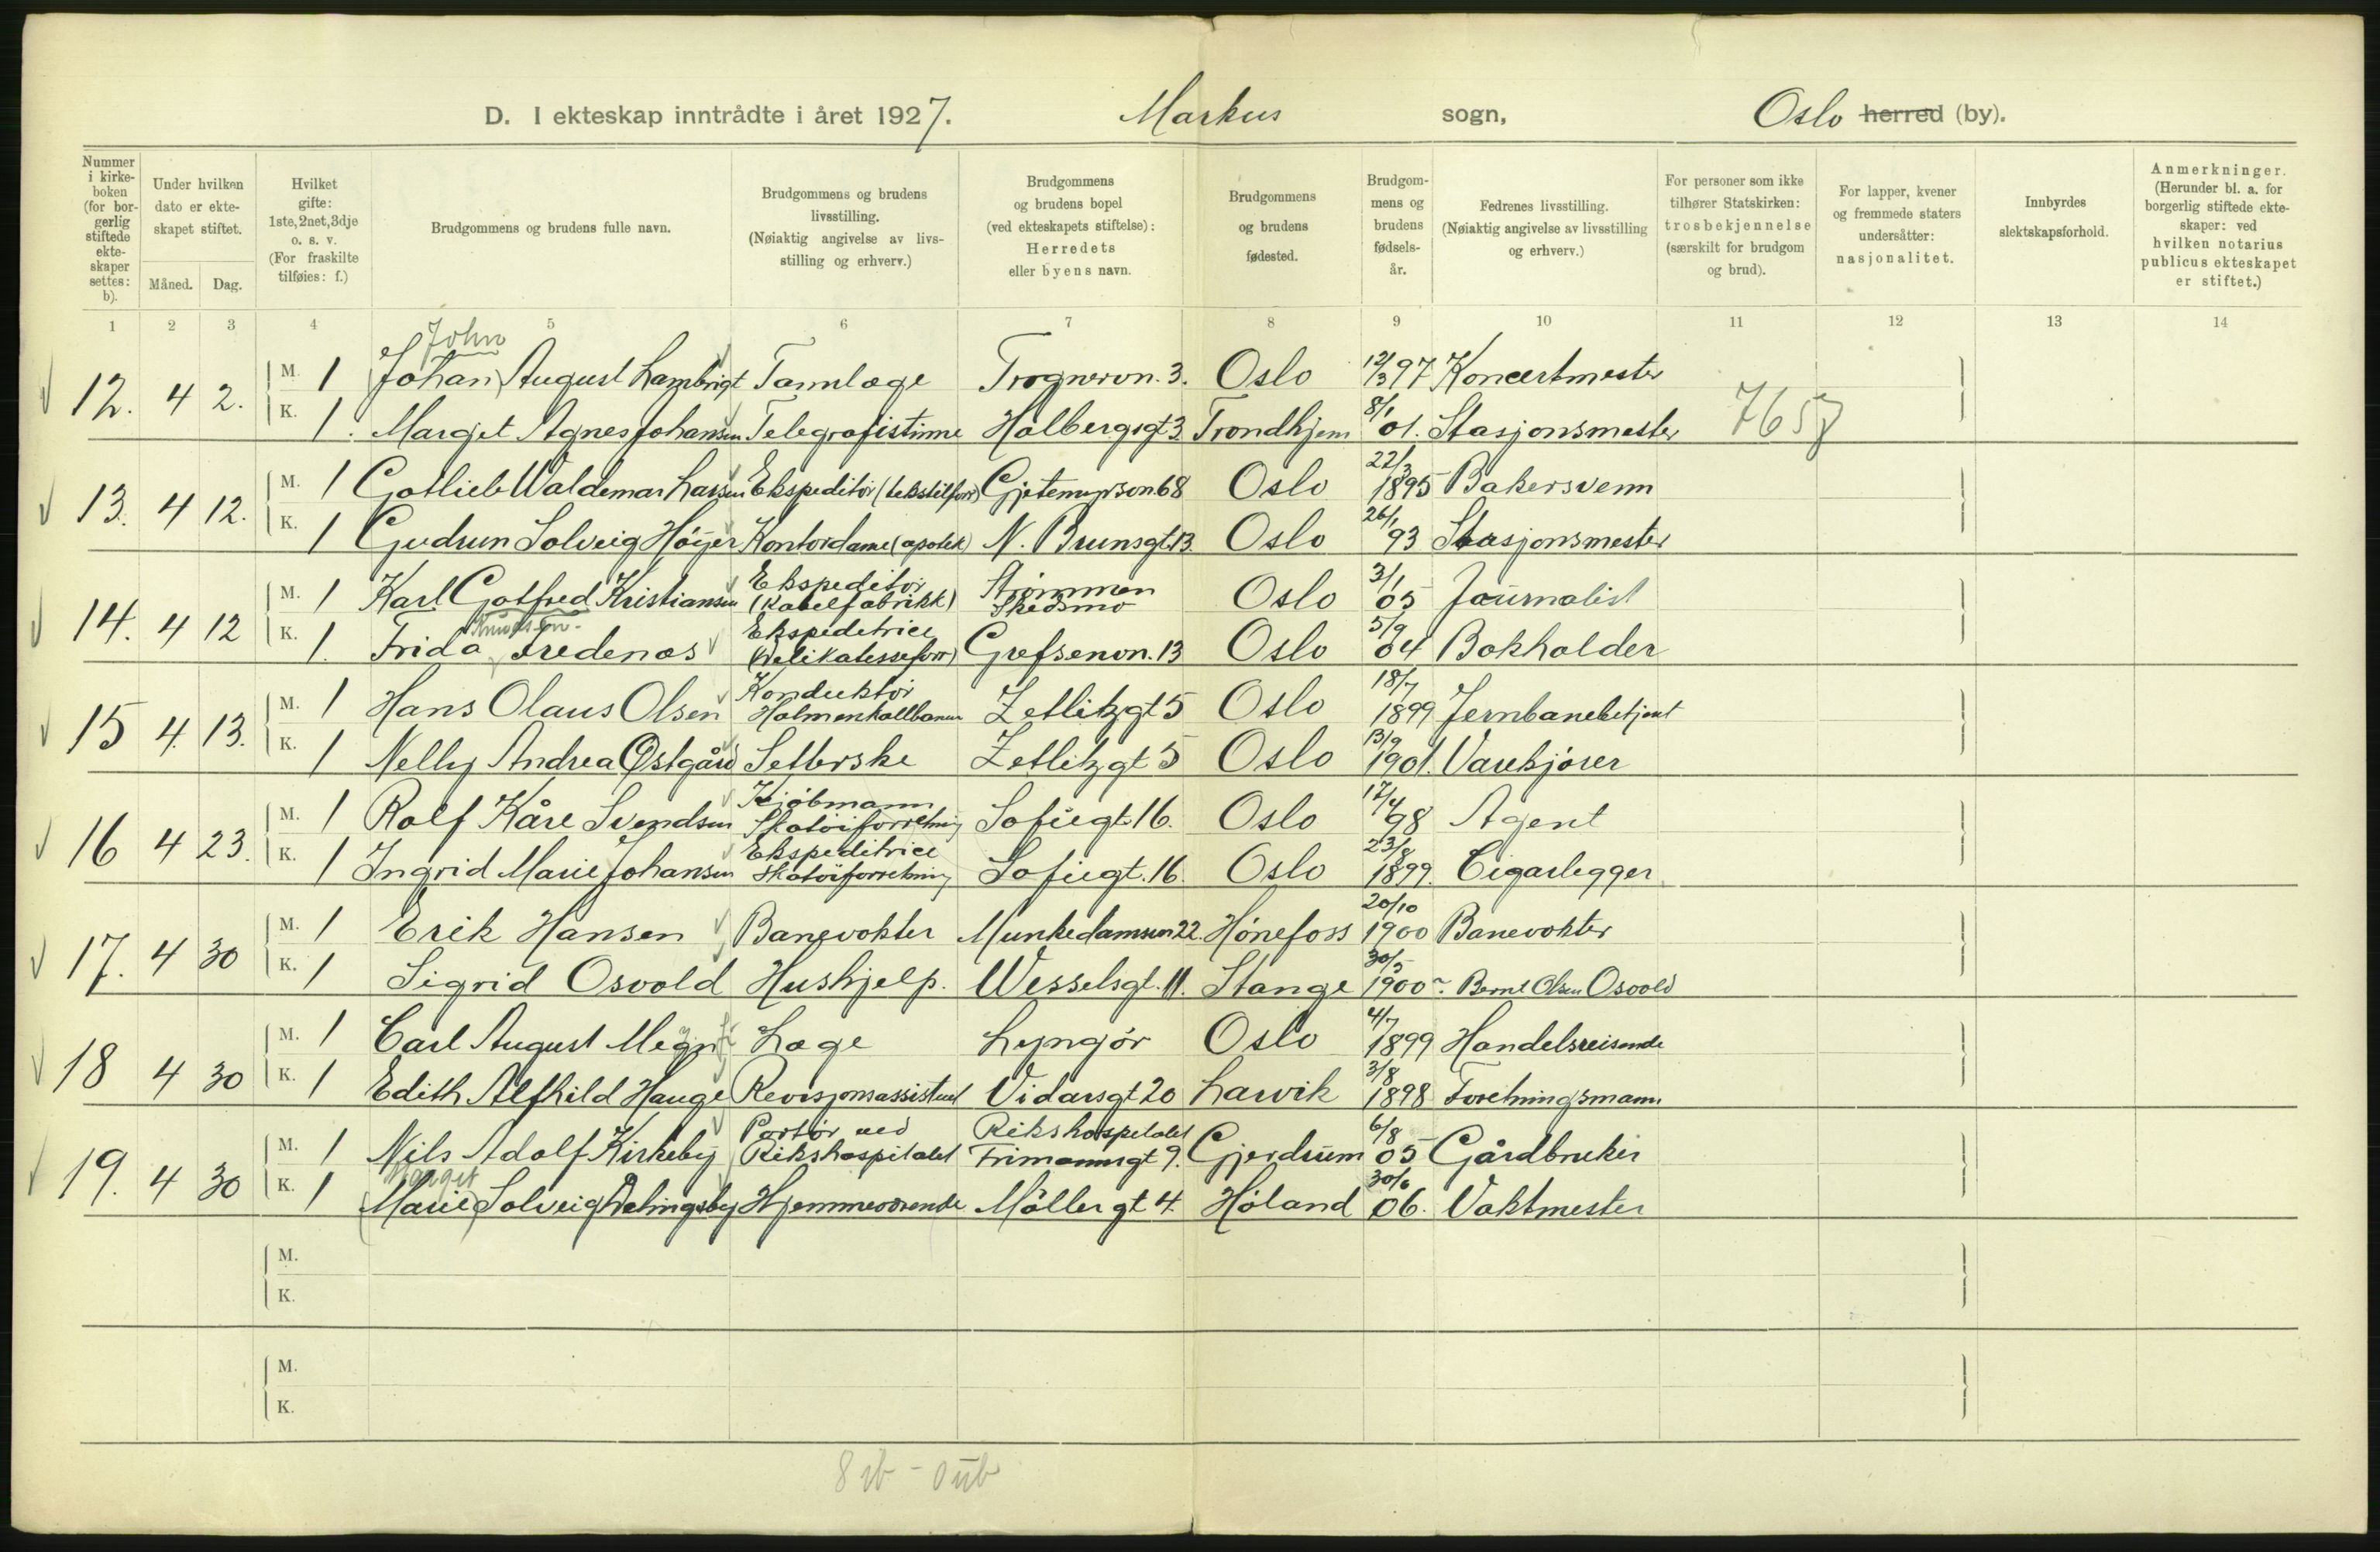 D. I ekteskap inntrådte i året 1927. Markus sogn, Oslo herred (by).
Nummer i kirke-boken (for bor-gerlig stiftede ekte-skaper settes: b).
Under hvilken dato er ekte-skapet stiftet.
Måned. Dag.
Hvilket gifte: 1ste, 2net, 3dje o. s. v. (For fraskilte tilføies: f.)
Brudgommens og brudens fulle navn.
Brudgommens og brudens livsstilling. (Nøiaktig angivelse av livs-stilling og erhverv.)
Brudgommens og brudens bopel (ved ekteskapets stiftelse): Herredets eller byens navn.
Brudgommens og brudens fødested.
Brudgom-mens og brudens fødsels-år.
Fedrenes livsstilling. (Nøiaktig angivelse av livsstilling og erhverv.)
For personer som ikke tilhører Statskirken: trosbekjennelse (særskilt for brudgom og brud).
For lapper, kvener og fremmede staters undersåtter: nasjonalitet.
Innbyrdes slektskapsforhold.
Anmerkninger. (Herunder bl. a. for borgerlig stiftede ekte-skaper: ved hvilken notarius publicus ekteskapet er stiftet.)
1 2 3 4 5 6 7 8 9 10 11 12 13 14
John
12. 4 2. M. 1 (Johan) August Lambrigt Tannlæge Trognervn. 3. Oslo 12/3 97 Koncertmester
K. 1. Marget Agnes Johansen Telegrafistinne Holbergsgt 3 Trondhjem 8/1 01. Stasjonsmester 7657
13. 4 12. M. 1 Gotlieb Waldemar Larsen Ekspeditør (tekstilforr) Gjetemyrsvn 68 Oslo 22/3 1895 Bakersvenn
K. 1 Gudrun Solveig Höyer Kontordame (apotek) N. Brunsgt. 13. Oslo 26/1 93 Stasjonsmester
14. 4 12 M. 1 Karl Gotfred Kristiansen Ekspeditør (Kabelfabrikk) Strömmen Skedsmo Oslo 3/1 05 Journalist
Knudsen
K. 1. Frida Fredenæs Ekspeditrice (Delikatesseforr) Grefsenvn. 13 Oslo 5/9 04 Bokholder
15 4. 13. M. 1 Hans Olaus Olsen Konduktør Holmenkollbanen Zetlitzgt 5 Oslo 18/7 1899 Jernbanebetjent
K. 1 Nelly Andrea Østgård Setterske Zetlitzgt 5 Oslo 13/9 1901. Varekjører
16 4 23. M. 1 Rolf Kåre Svendsen Kjöbmann Skotøiforretning Sofiegt. 16. Oslo 17/4 98 Agent
K. 1 Ingrid Marie Johansen Ekspeditrice Skotøiforretning Sofiegt. 16. Oslo 23/8 1899. Cigarlegger
17. 4 30 M. 1 Erik Hansen Banevokter Munkedamsvn 22. Hönefoss 20/10 1900 Banevokter
K. 1 Sigrid Osvold Hushjelp. Wesselsgt. 11. Stange 30/5 1900 Bernt Olsen Osvold
18 4 30 M. 1 Carl August Megn Læge Lyngør Oslo 4/7 1899 Handelsreisende
K. 1 Edith Alfhild Hauge Revisjonsassistent Vidarsgt 20 Larvik 3/8 1898 Forretningsmann
19. 4 30 M. 1 Nils Adolf Kirkeby Portør ved Rikshospitalet Rikshospitalet Frimannsgt 9. Gjerdrum 6/8 05 Gårdbruker
Marget
K. 1 (Marie) Solveig Hjemmeværende Möllergt 4. Höland 30/6 06. Vaktmester
M.
K.
M.
K.